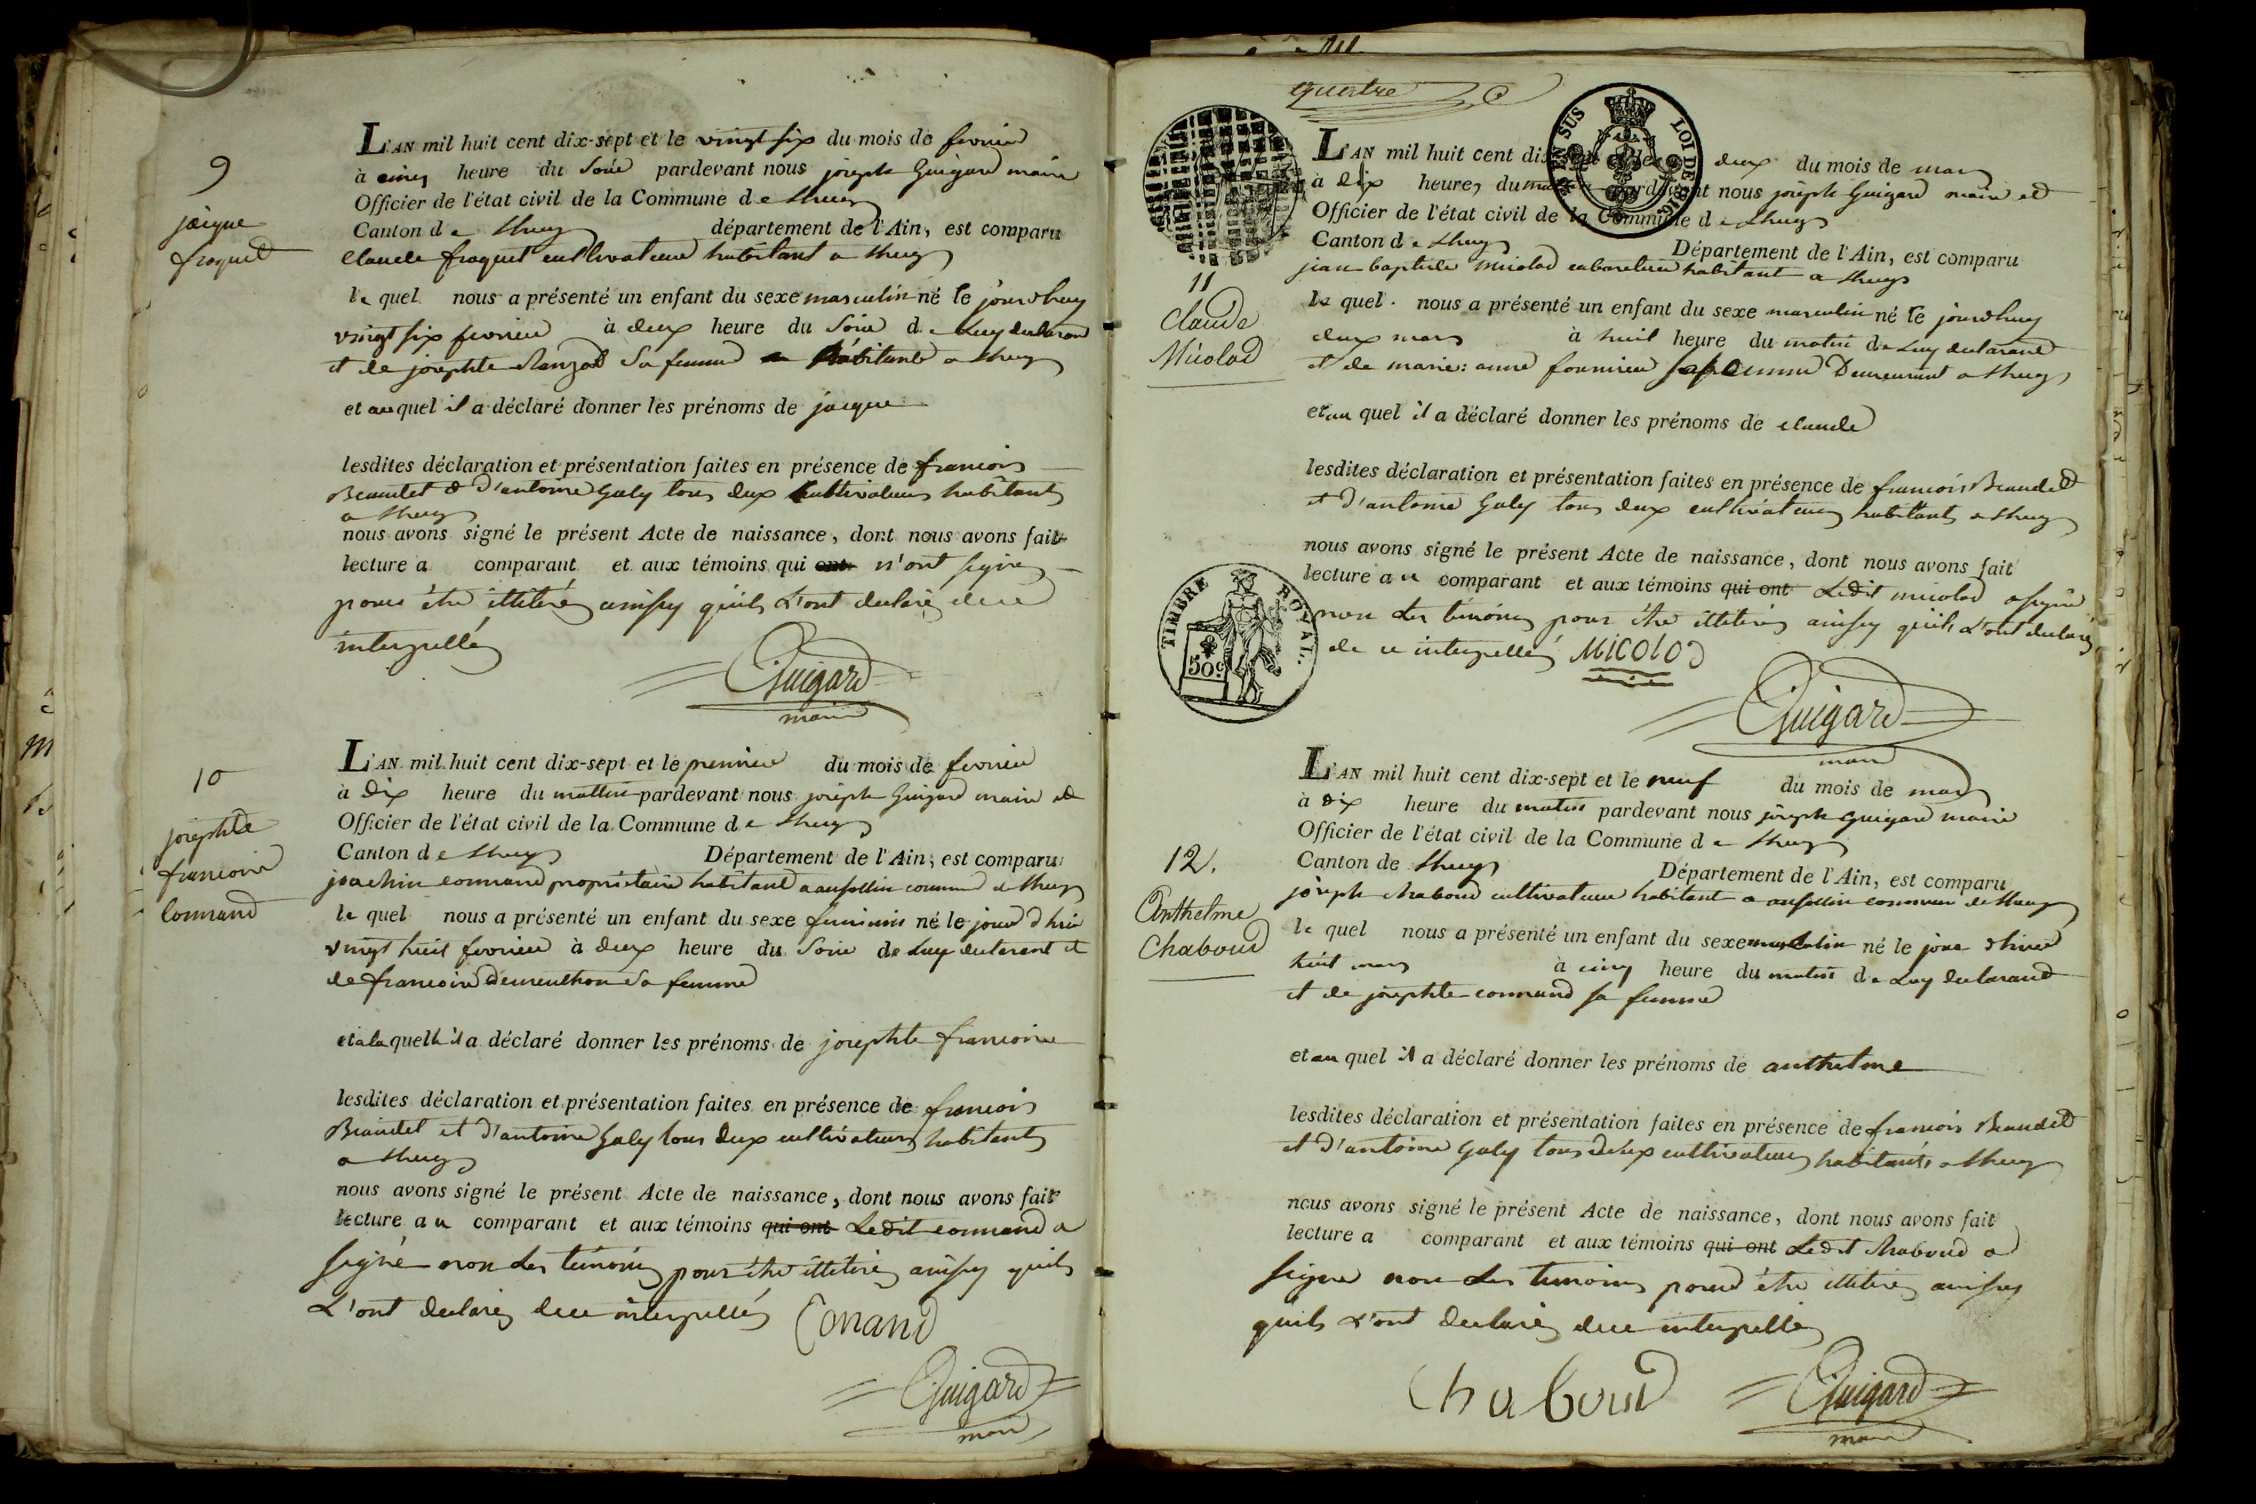 9
jacque
fraquet
L'AN mil huit cent dix-sept et le vingt six du mois de fevrier
à cinq heure du Soir pardevant nous joseph Guigard maire
Officier de l'état civil de la Commune de
Canton de département de l'Ain, est comparu
Claude fraquet cultivateur habitant a
le quel nous a présenté un enfant du sexe masculin né le jourdhuy
vingt six fevrier à deux heure du Soir de Luy declarant
et de josephte Sa femme habitante a
et au quel il a déclaré donner les prénoms de jacque
lesdites déclaration et présentation faites en présence de francois
Beaudet & d'antoine Galy tous deux Cultivateurs habitants
a
nous avons signé le présent Acte de naissance, dont nous avons fait
lecture a comparant et aux témoins qui ont n'ont signe
pour être illitérés ainssy quils L'ont declarés de ce
interpellés
Guigard
maire
10
josephte
francoise
Connand
L'AN mil huit cent dix-sept et le premier du mois de fevrier
à Dix heure du mattin pardevant nous joseph Guigard maire et
Officier de l'état civil de la Commune de
Canton de Département de l'Ain, est comparu
joachin connand propriétaire habitant a commune de
le quel nous a présenté un enfant du sexe feminin né le jour d hier
vingt huit fevrier à deux heure du Soir de Luy declarant et
de francoise Sa femme
et a la quelle il a déclaré donner les prénoms de josephte francoise
lesdites déclaration et présentation faites en présence de francois
Beaudet et d'antoine Galy tous deux cultivateurs habitants
a
nous avons signé le présent Acte de naissance, dont nous avons fait
lecture au comparant et aux témoins qui ont Ledit connand a
signé non les témoins pour être illitérés ainssy quils
L'ont declarés de ce interpellés Conand
Guigard
maire
quatre
S EN SUS
LOI DE
11
Claude
Micolod
L'AN mil huit cent dix-sept et le deux du mois de mars
à Dix heures du matin pardevant nous joseph Guigard maire et
Officier de l'état civil de la Commune de
Canton de Département de l'Ain, est comparu
jean baptiste micolod cabaretier habitant a
le quel nous a présenté un enfant du sexe masculin né le jourdhuy
deux mars à huit heure du matin de Luy declarant
et de marie: anne fournier sa femme Demeurant a
et au quel il a déclaré donner les prénoms de claude
lesdites déclaration et présentation faites en présence de francois Beaudet
et d'antoine Galy tous deux cultivateurs habitants a
nous avons signé le présent Acte de naissance, dont nous avons fait
lecture au comparant et aux témoins qui ont Ledit micolod a signé
non les témoins pour être illitérés ainssy quils L'ont declarés
de ce interpellés MICOLOD
TIMBRE ROYAL.
50c
Guigard
maire
12.
Anthelme
Chaboud
L'AN mil huit cent dix-sept et le neuf du mois de mars
à dix heure du matin pardevant nous joseph Guigard maire
Officier de l'état civil de la Commune de
Canton de Département de l'Ain, est comparu
joseph chaboud cultivateur habitant a commune de
le quel nous a présenté un enfant du sexe masculin né le jour d hier
huit mars à cinq heure du matin de Luy declarant
et de josephte connand sa femme
et au quel il a déclaré donner les prénoms de anthelme
lesdites déclaration et présentation faites en présence de francois Beaudet
et d'antoine Galy tous deux cultivateurs habitants a
nous avons signé le présent Acte de naissance, dont nous avons fait
lecture a comparant et aux témoins qui ont Ledit chaboud a
signe non les temoins pour être illitérés ainssy
quils L'ont declarés de ce interpellés
Chaboud
Guigard
maire